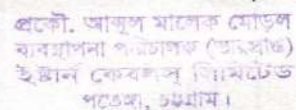 প্রকৌ. আবুল মালেক মোড়ল
ব্যবস্থাপনা পরিচালক (ভারপ্রাপ্ত)
ইষ্টার্ন কেবলস্ লিমিটেড
পতেঙ্গা, চট্টগ্রাম।